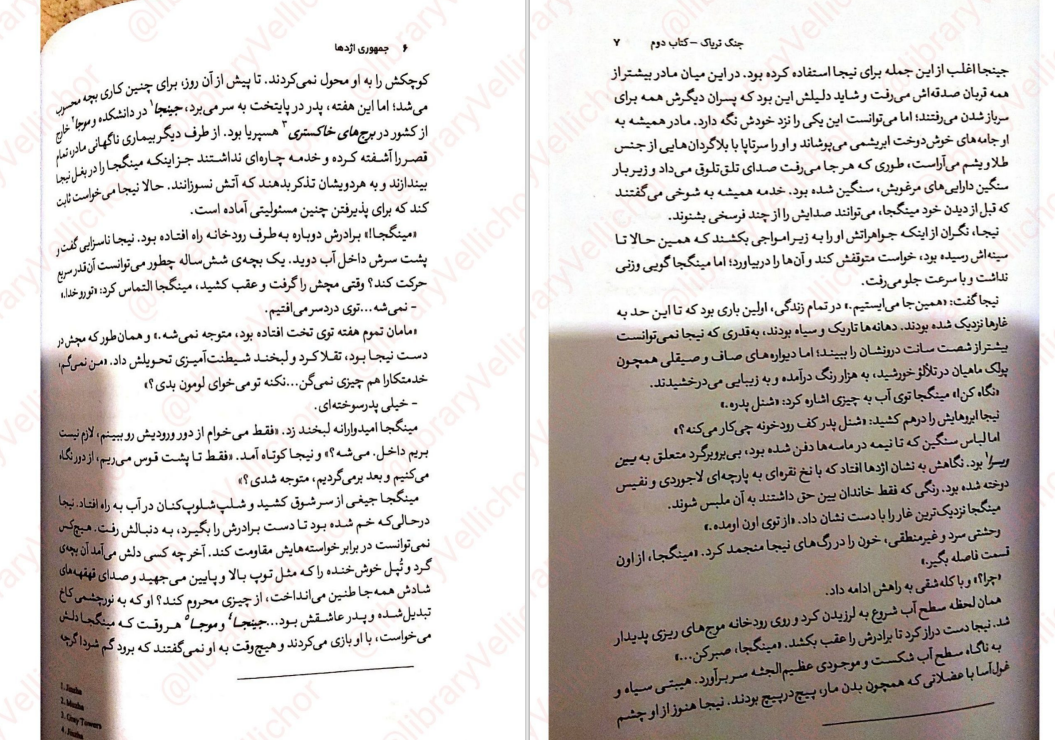 ۶ جمهوری اژدها
کوچکش را به او محول نمی‌کردند. تا پیش از آن روز، برای چنین کاری بچه محسوب
می‌شد؛ اما این هفته، پدر در پایتخت به سر می‌برد، جینجا۱ در دانشکده و موجا۲ خارج
از کشور در برج‌های خاکستری۳ هسپریا بود. از طرف دیگر بیماری ناگهانی مادر، تمام
قصر را آشفته کرده و خدمه چاره‌ای نداشتند جز اینکه مینگجا را در بغل نیجا
بیندازند و به هردویشان تذکر بدهند که آتش نسوزانند. حالا نیجا می‌خواست ثابت
کند که برای پذیرفتن چنین مسئولیتی آماده است.
«مینگجا!» برادرش دوباره به‌طرف رودخانه راه افتاده بود. نیجا ناسزایی گفت و
پشت سرش داخل آب دوید. یک بچه‌ی شش‌ساله چطور می‌توانست آن‌قدر سریع
حرکت کند؟ وقتی مچش را گرفت و عقب کشید، مینگجا التماس کرد: «تو رو خدا.»
- نمی‌شه...توی دردسر می‌افتیم.
«مامان تموم هفته توی تخت افتاده بود، متوجه نمی‌شه.» و همان‌طور که مچش در
دست نیجا بود، تقلا کرد و لبخند شیطنت‌آمیزی تحویلش داد. «من نمی‌گم،
خدمتکارا هم چیزی نمی‌گن...نکنه تو می‌خوای لومون بدی؟»
- خیلی پدرسوخته‌ای.
مینگجا امیدوارانه لبخند زد. «فقط می‌خوام از دور ورودیش رو ببینم، لازم نیست
بریم داخل. می‌شه؟» و نیجا کوتاه آمد. «فقط تا پشت قوس می‌ریم، از دور نگاه
می‌کنیم و بعد برمی‌گردیم، متوجه شدی؟»
مینگجا جیغی از سر شوق کشید و شلپ‌شلوپ‌کنان در آب به راه افتاد. نیجا
درحالی‌که خم شده بود تا دست برادرش را بگیرد، به دنبالش رفت. هیچ‌کس
نمی‌توانست در برابر خواسته‌هایش مقاومت کند. آخر چه کسی دلش می‌آمد آن بچه‌ی
گرد و تُپل خوش‌خنده را که مثل توپ بالا و پایین می‌جهید و صدای قهقهه‌های
شادش همه‌جا طنین می‌انداخت، از چیزی محروم کند؟ او که به نورچشمی کاخ
تبدیل شده و پدر عاشقش بود...جینجا۴ و موجا۵ هر وقت که مینگجا دلش
می‌خواست، با او بازی می‌کردند و هیچ‌وقت به او نمی‌گفتند که برود گم شود! گرچه
1. Jinzha
2. Muzha
3. Gray Towers
4. Jinzha
جنگ تریاک – کتاب دوم ۷
جینجا اغلب از این جمله برای نیجا استفاده کرده بود. در این میان مادر بیشتر از
همه قربان صدقه‌اش می‌رفت و شاید دلیلش این بود که پسران دیگرش همه برای
سرباز شدن می‌رفتند؛ اما می‌توانست این یکی را نزد خودش نگه دارد. مادر همیشه به
او جامه‌های خوش‌دوخت ابریشمی می‌پوشاند و او را سرتاپا با بلاگردان‌هایی از جنس
طلا و یشم می‌آراست، طوری که هر جا می‌رفت صدای تلق‌تلوق می‌داد و زیر بار
سنگین دارایی‌های مرغوبش، سنگین شده بود. خدمه همیشه به شوخی می‌گفتند
که قبل از دیدن خود مینگجا، می‌توانند صدایش را از چند فرسخی بشنوند.
نیجا، نگران از اینکه جواهراتش او را به زیر امواجی بکشند که همین حالا تا
سینه‌اش رسیده بود، خواست متوقفش کند و آن‌ها را دربیاورد؛ اما مینگجا گویی وزنی
نداشت و با سرعت جلو می‌رفت.
نیجا گفت: «همین‌جا می‌ایستیم.» در تمام زندگی، اولین باری بود که تا این حد به
غارها نزدیک شده بودند. دهانه‌ها تاریک و سیاه بودند، به‌قدری که نیجا نمی‌توانست
بیشتر از شصت سانت درونشان را ببیند؛ اما دیواره‌های صاف و صیقلی همچون
پولک ماهیان در تلألؤ خورشید، به هزار رنگ درآمده و به زیبایی می‌درخشیدند.
«نگاه کن!» مینگجا توی آب به چیزی اشاره کرد: «شنل پدره.»
نیجا ابروهایش را درهم کشید: «شنل پدر کف رودخونه چی‌کار می‌کنه؟»
اما لباس سنگین که تا نیمه در ماسه‌ها دفن شده بود، بی‌بروبرگرد متعلق به یین
ویسرا بود. نگاهش به نشان اژدها افتاد که با نخ نقره‌ای به پارچه‌ای لاجوردی و نفیس
دوخته شده بود. رنگی که فقط خاندان یین حق داشتند به آن ملبس شوند.
مینگجا نزدیک‌ترین غار را با دست نشان داد. «از توی اون اومده.»
وحشتی سرد و غیرمنطقی، خون را در رگ‌های نیجا منجمد کرد. «مینگجا، از اون
قسمت فاصله بگیر.»
«چرا؟» و با کله‌شقی به راهش ادامه داد.
همان لحظه سطح آب شروع به لرزیدن کرد و روی رودخانه موج‌های ریزی پدیدار
شد. نیجا دست دراز کرد تا برادرش را عقب بکشد. «مینگجا، صبر کن...»
به ناگاه سطح آب شکست و موجودی عظیم‌الجثه سر برآورد. هیبتی سیاه و
غول‌آسا با عضلاتی که همچون بدن مار، پیچ‌درپیچ بودند. نیجا هنوز از او چشم
@libraryVellichor